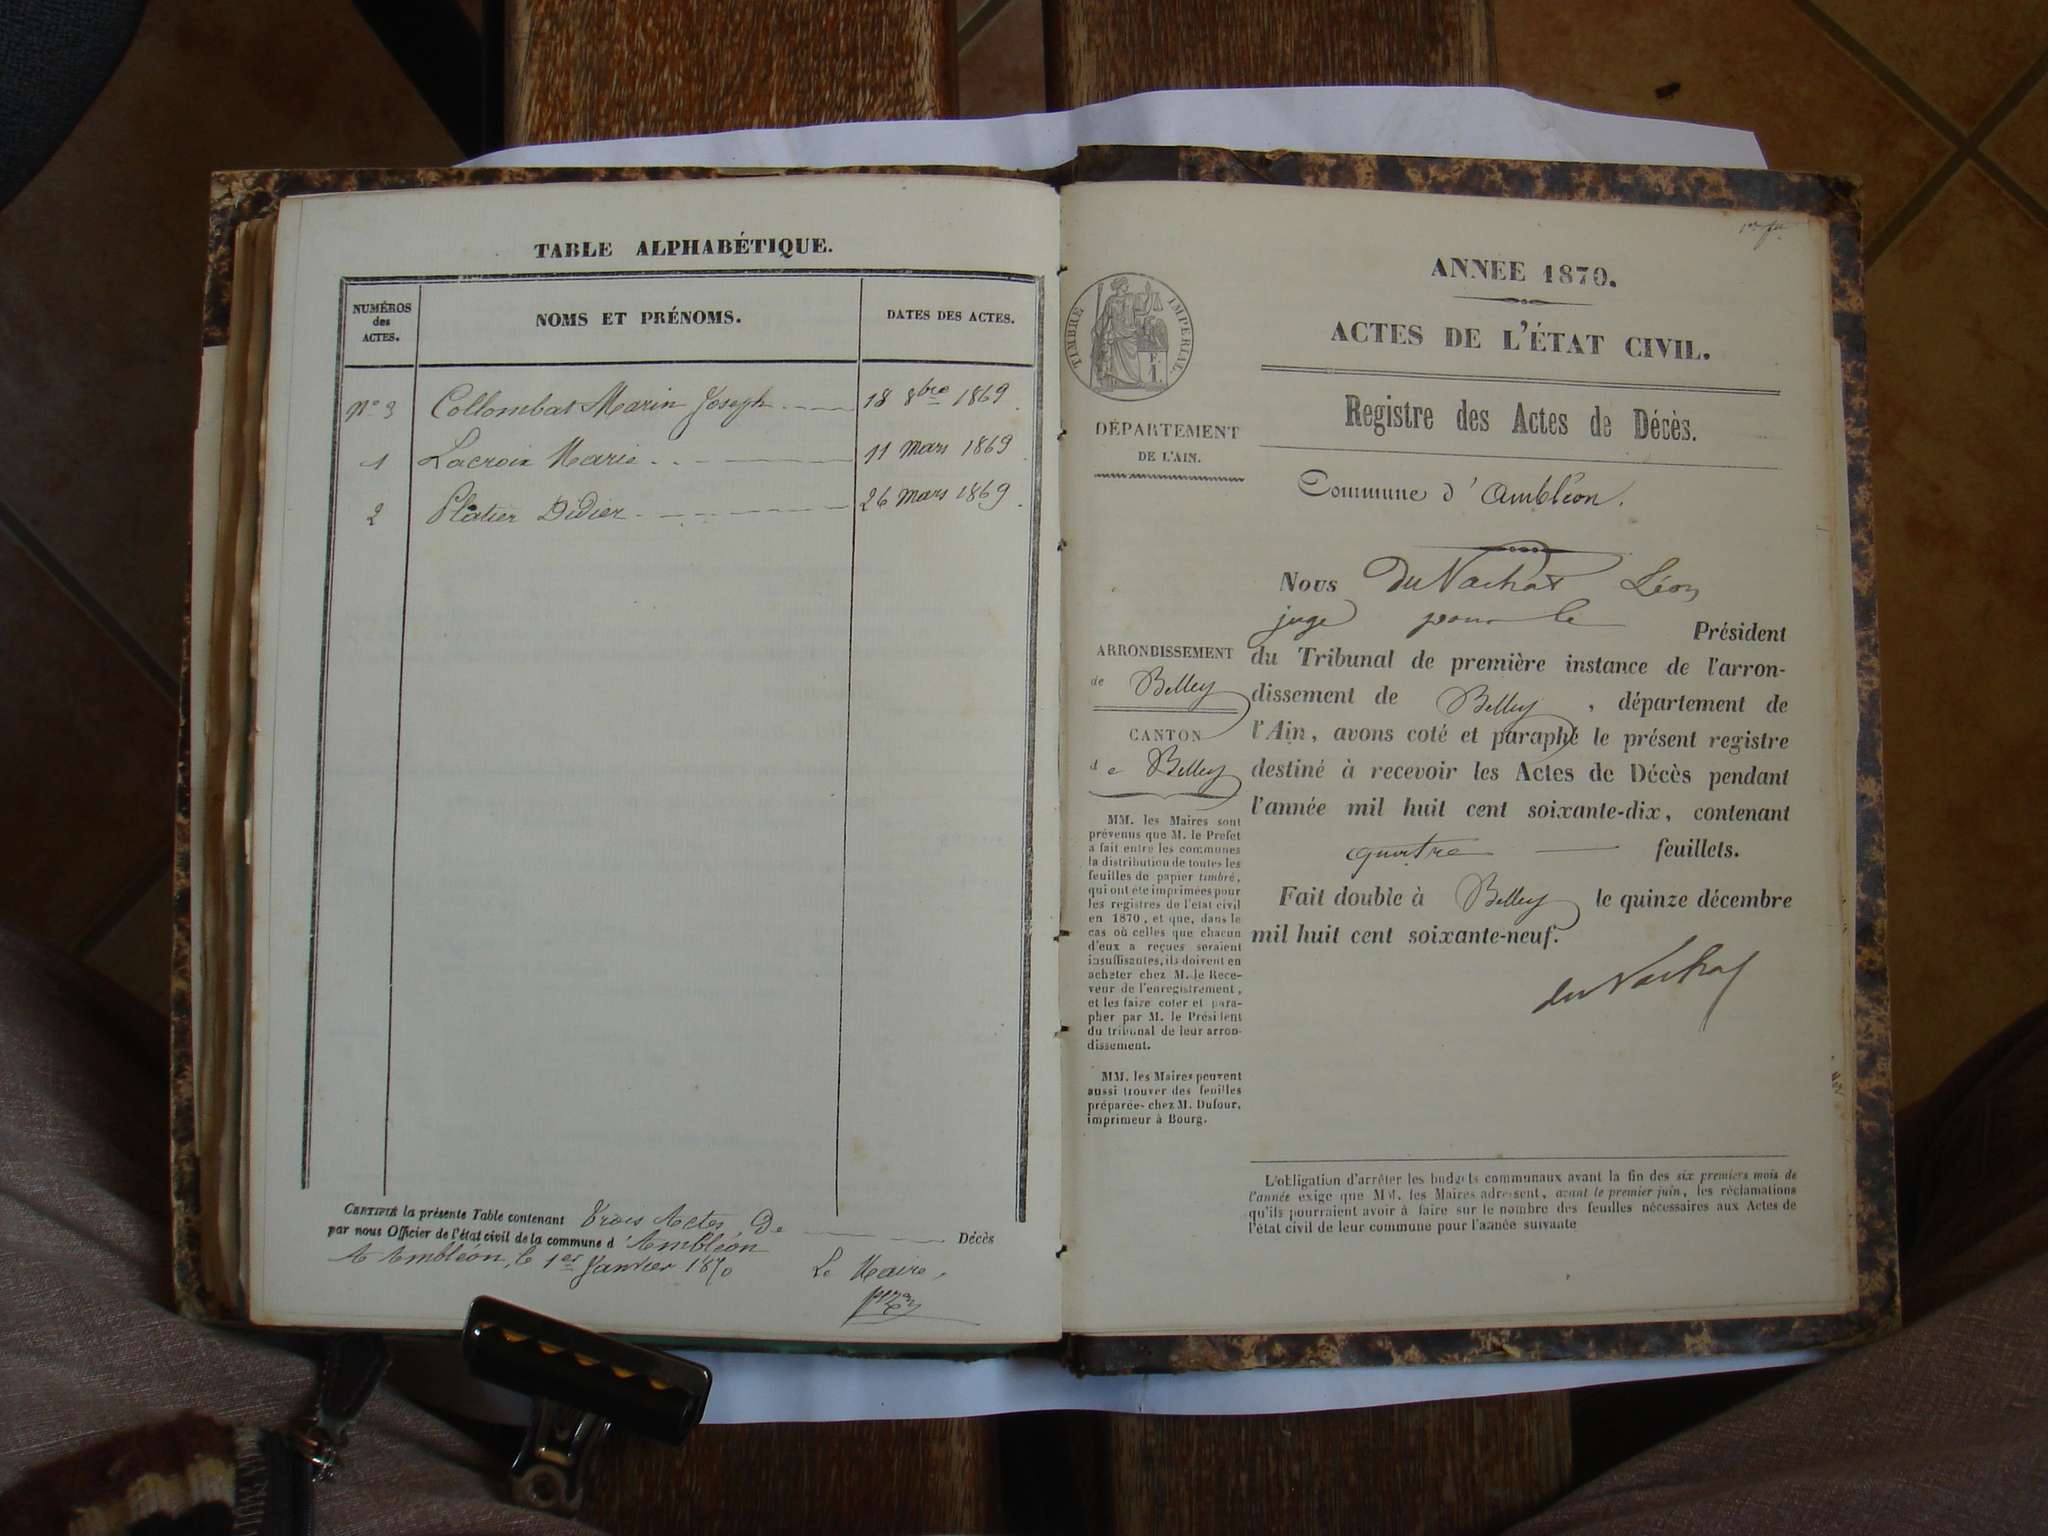 TABLE ALPHABÉTIQUE.
NUMÉROS
des
ACTES.
NOMS ET PRÉNOMS.
DATES DES ACTES.
N° 3 Collombat Marin Joseph 18 8bre 1869.
1 Lacroix Marie 11 Mars 1869.
2 Platier Didier 26 Mars 1869.
CERTIFIÉ la présente Table contenant trois Actes De Décès
par nous Officier de l'état civil de la commune d'Ambléon
A Ambléon, le 1er Janvier 1870
Le Maire,
ANNÉE 1870.
ACTES DE L'ÉTAT CIVIL.
TIMBRE IMPÉRIAL
Registre des Actes de Décès.
DÉPARTEMENT
DE L'AIN.
Commune d'Ambléon.
ARRONDISSEMENT
de Belley
CANTON
de Belley
MM. les Maires sont
prévenus que M. le Préfet
a fait entre les communes
la distribution de toutes les
feuilles de papier timbré,
qui ont été imprimées pour
les registres de l'état civil
en 1870, et que, dans le
cas où celles que chacun
d'eux a reçues seraient
insuffisantes, ils doivent en
acheter chez M. le Rece-
veur de l'enregistrement,
et les faire coter et para-
pher par M. le Président
du tribunal de leur arron-
dissement.
MM. les Maires peuvent
aussi trouver des feuilles
préparées chez M. Dufour,
imprimeur à Bourg.
Nous Du Vachat Léon
juge pour le Président
du Tribunal de première instance de l'arron-
dissement de Belley, département de
l'Ain, avons coté et paraphé le présent registre
destiné à recevoir les Actes de Décès pendant
l'année mil huit cent soixante-dix, contenant
quatre feuillets.
Fait double à Belley le quinze décembre
mil huit cent soixante-neuf.
du Vachat
L'obligation d'arrêter les budgets communaux avant la fin des six premiers mois de
l'année exige que MM. les Maires adressent, avant le premier juin, les réclamations
qu'ils pourraient avoir à faire sur le nombre des feuilles nécessaires aux Actes de
l'état civil de leur commune pour l'année suivante